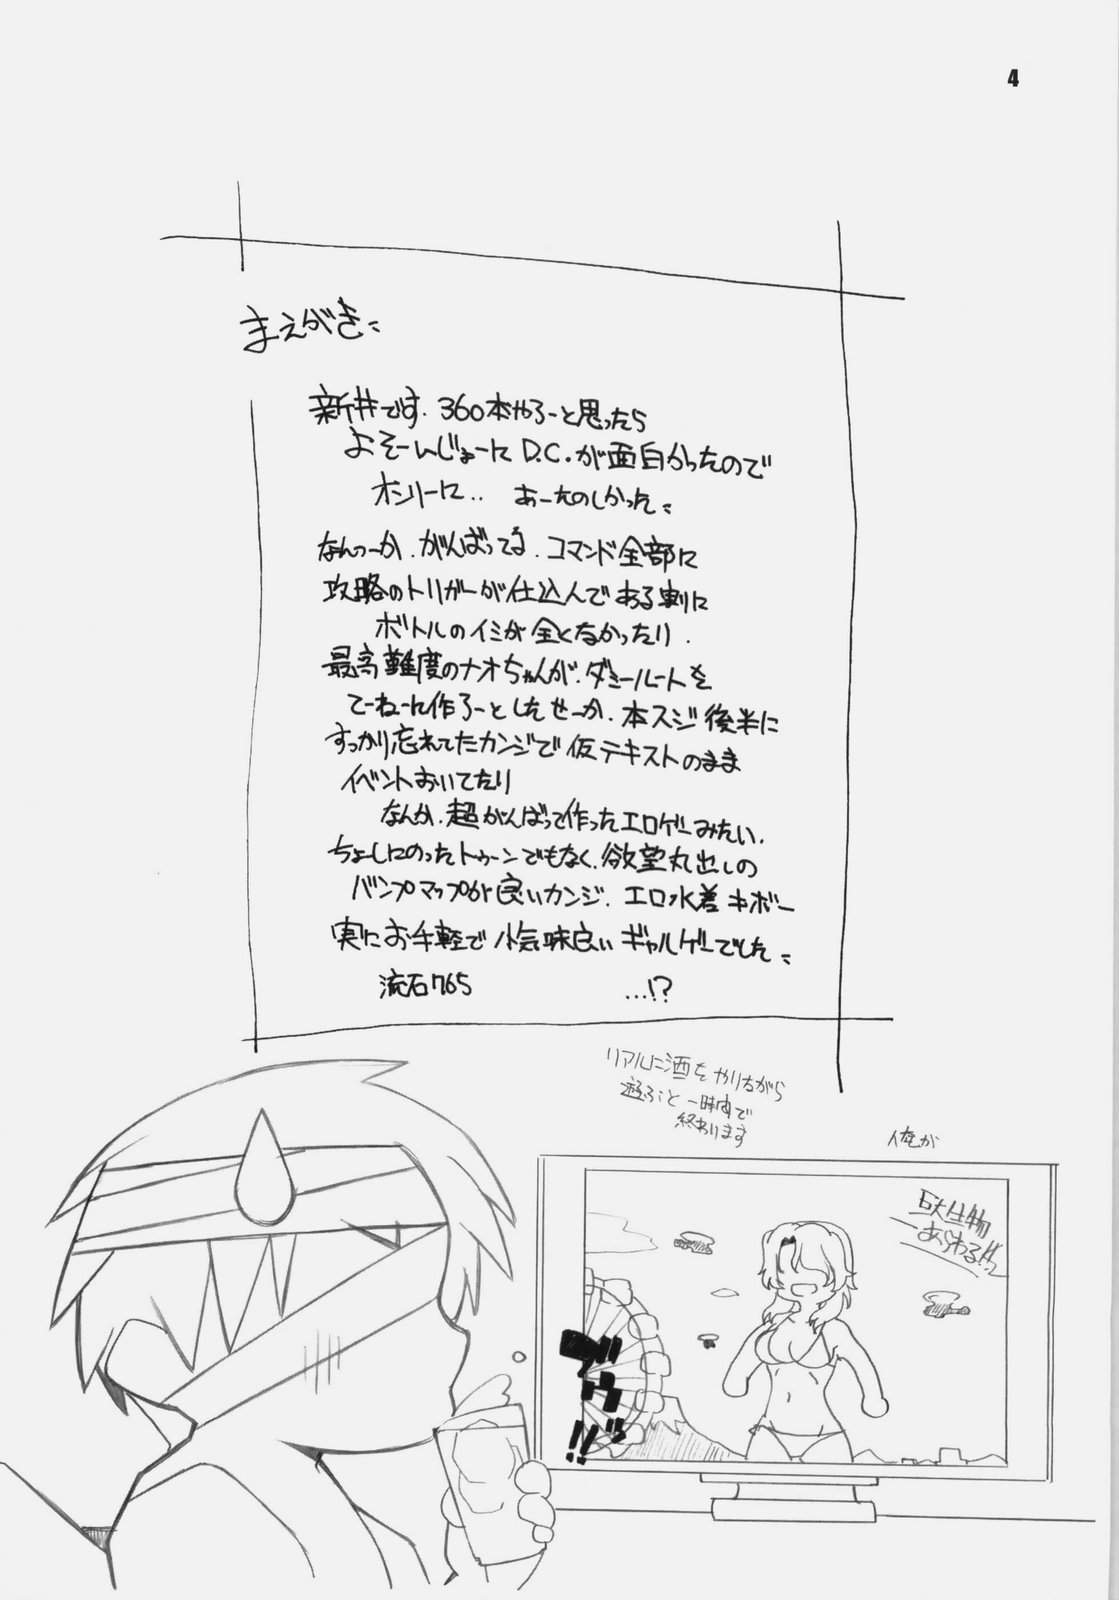 4
まえがき:
新井です. 360本やろーと思ったら
よそーいじょーに D.C.が面白かったので
オンリーに.. あーたのしかった:
なんつーか.がんばってる.コマンド全部に
攻略のトリガーが仕込んである割に
ボトルのイミが全くなかったり.
最高難度のナオちゃんが.ダミールートを
てーねーに作ろーとしたせーか.本スジ後半に
すっかり忘れてたカンジで仮テキストのまま
イベントおいてたり
なんか.超がんばって作ったエロゲーみたい.
ちょーしにのったトゥーンでもなく.欲望丸出しの
バンプマップが良いカンジ.エロ水着キボー
実にお手軽で小気味良いギャルゲーでした:
流石765 ...!?
リアルに酒をやりながら
遊ぶと一時間で
終わります
俺が
巨大生物
あらわる!!